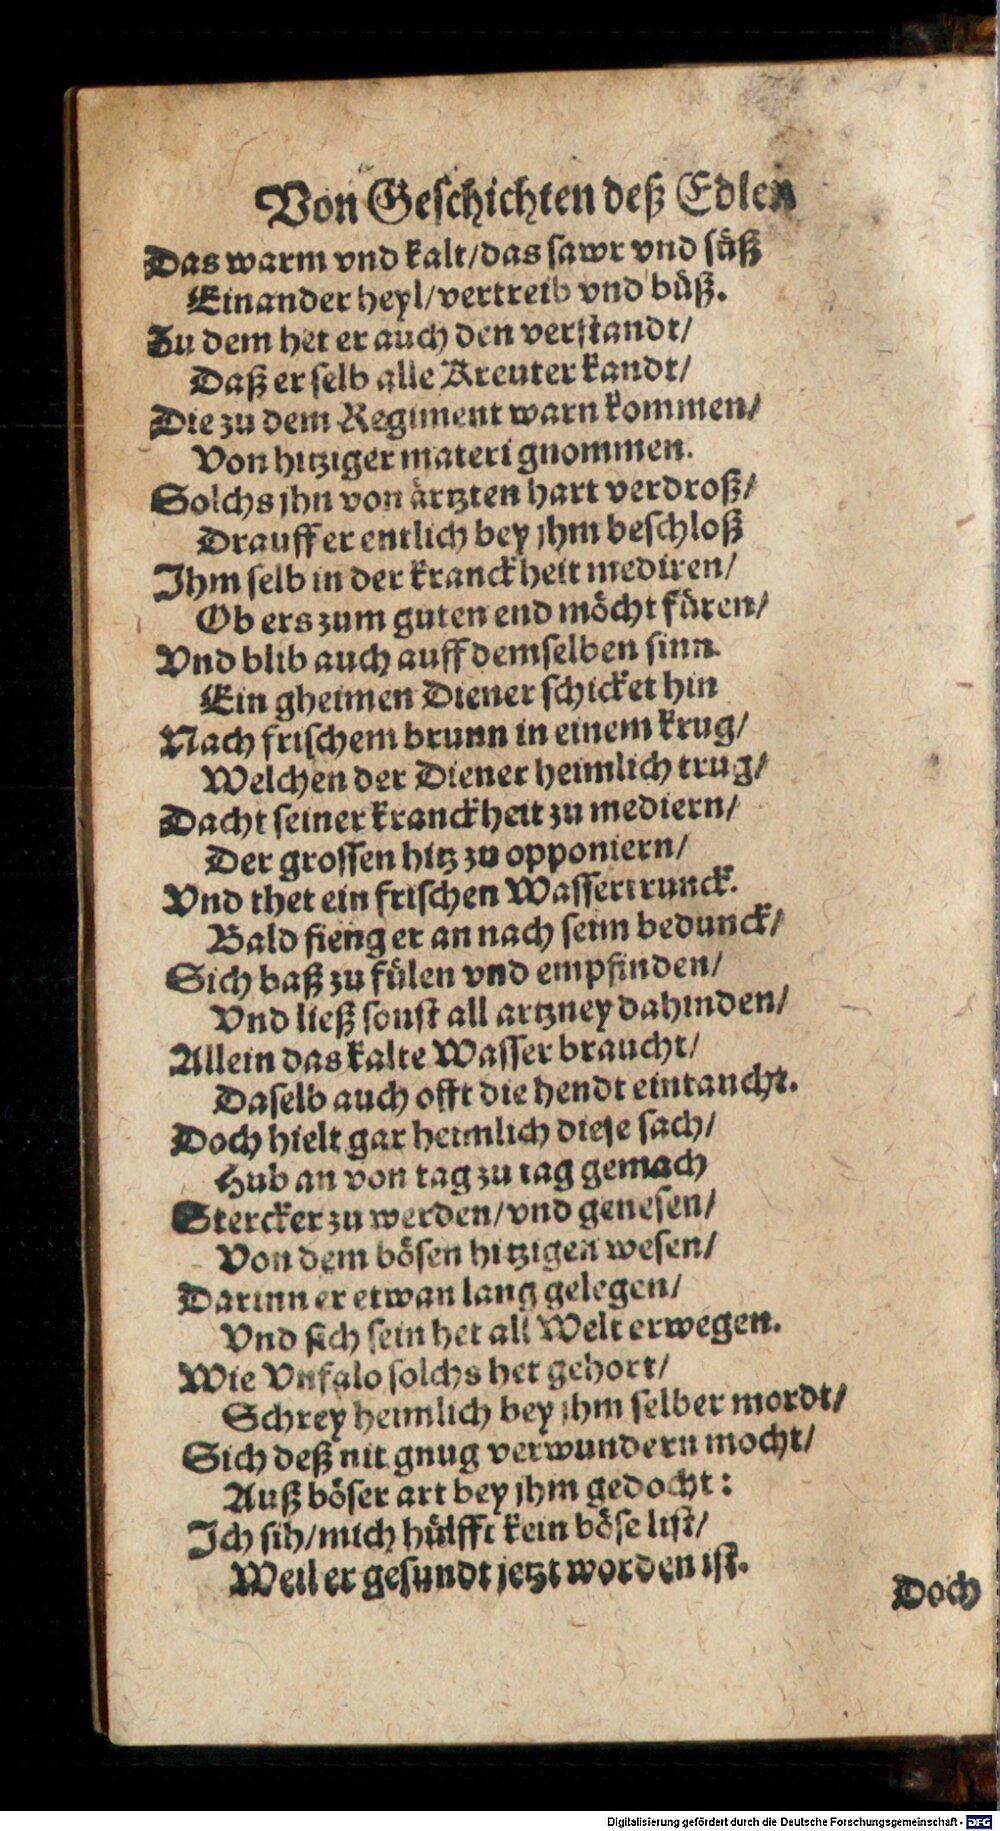 Von Geschichten deß Edlen
Das warm vnd kalt/das sawr vnd süß
Einander heyl/vertreib vnd büß.
Zu dem het er auch den verstandt/
Daß er selb alle Kreuter kandt/
Die zu dem Regiment warn kommen/
Von hitziger materi gnommen.
Solchs jhn von ärtzten hart verdroß/
Drauff er entlich bey jhm beschloß
Ihm selb in der kranckheit mediren/
Ob ers zum guten end möcht füren/
Vnd blib auch auff demselben sinn.
Ein gheimen Diener schicket hin
Nach frischem brunn in einem krug/
Welchen der Diener heimlich trug/
Dacht seiner kranckheit zu mediern/
Der grossen hitz zu opponiern/
Vnd thet ein frischen Wassertrunck.
Bald fieng er an nach seim bedunck/
Sich baß zu fülen vnd empfinden/
Vnd ließ sonst all artzney dahinden/
Allein das kalte Wasser braucht/
Daselb auch offt die hendt eintaucht.
Doch hielt gar heimlich diese sach/
Hub an von tag zu tag gemach
Stercker zu werden/vnd genesen/
Von dem bösen hitzigen wesen/
Darinn er etwan lang gelegen/
Vnd sich sein het all Welt erwegen.
Wie Vnfalo solchs het gehort/
Schrey heimlich bey jhm selber mordt/
Sich deß nit gnug verwundern mocht/
Auß böser art bey jhm gedocht:
Ich sih/mich hülfft kein böse list/
Weil er gesundt jetzt worden ist.
Doch
Digitalisierung gefördert durch die Deutsche Forschungsgemeinschaft - DFG